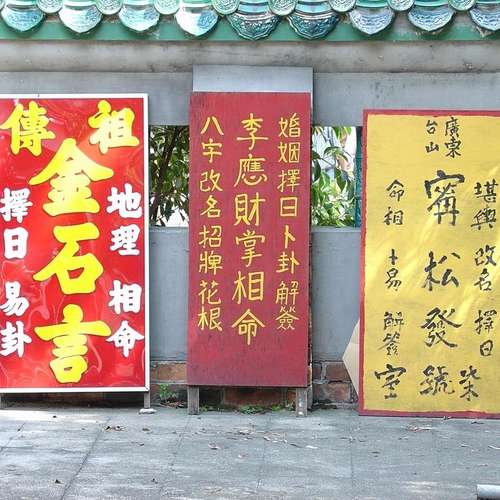 祖傳
金石言
地理 相命
擇日 易卦
婚姻擇日卜卦解簽
李應財掌相命
八字改名招牌花根
廣東
台山
堪輿 改名 擇日
甯松發號
柒室
命相 卜易 解簽